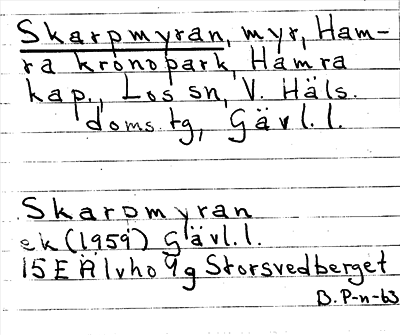 Skarpmyran, myr, Ham-
ra kronopark, Hamra
kap., Los sn, V. Häls.
doms.tg, Gävl.l.
Skarpmyran
ek (1959) Gävl.l.
15E Älvho 9g Storsvedberget
B. P-n-63